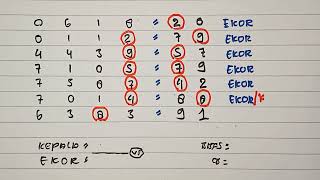 0 6 1 8 = 2 0 EKOR
0 1 1 2 = 7 9 EKOR
4 4 3 9 = 5 7 EKOR
7 1 0 5 = 7 9 EKOR
5 7 0 7 = 4 2 EKOR
7 0 1 4 = 8 0 EKOR/K
6 3 8 3 = 9 1
KEPALA =
EKOR = VS